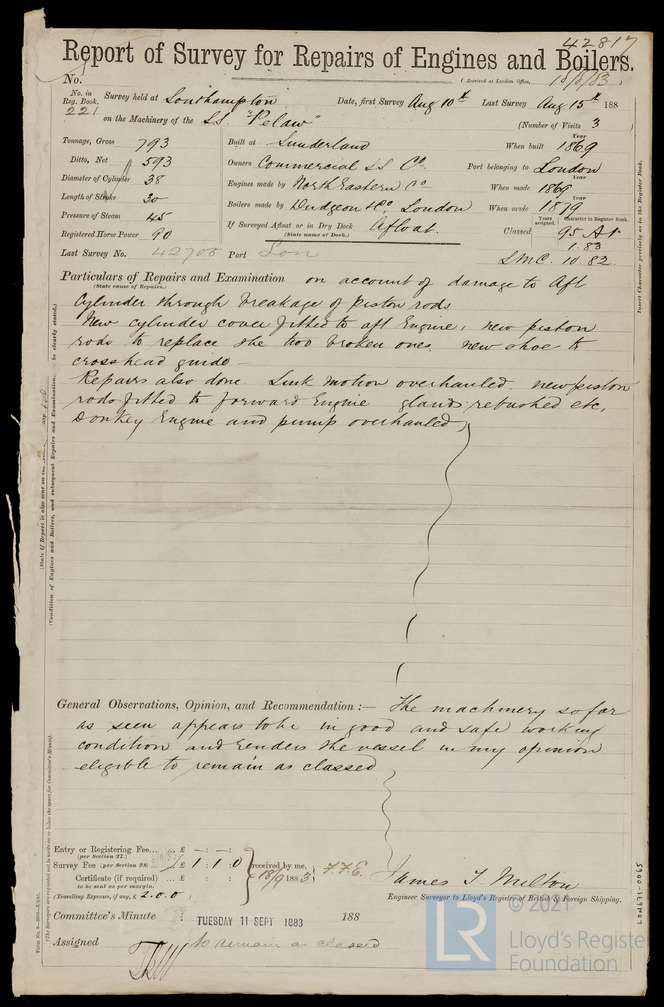 42817
Report of Survey for Repairs of Engines and Boilers.
No.
(Received at London Office, 18/8/83.
No. in Reg. Book. 221
Survey held at Southampton Date, first Survey Aug 10th Last Survey Aug 15th 188
on the Machinery of the S.S. "Pelaw" (Number of Visits 3 )
Tonnage, Gross 793
Ditto, Net 593
Diameter of Cylinder 38
Length of Stroke 30
Pressure of Steam 45
Registered Horse Power 90
Built at Sunderland When built Year 1869
Owners Commercial SS Co. Port belonging to London
Engines made by North Eastern Co When made Year 1869
Boilers made by Dudgeon & Co, London When made Year 1879
If Surveyed Afloat or in Dry Dock Afloat.
(State name of Dock.)
Classed Years assigned. Character in Register Book. 95 A1
1.83
LMC. 10.82.
Last Survey No. 42708 Port Lon
Particulars of Repairs and Examination on account of damage to Aft
(State cause of Repairs.)
Cylinder through breakage of piston rods
New cylinder cover fitted to aft Engine, new piston
rods to replace the two broken ones, new shoe to
crosshead guide
Repairs also done Link motion overhauled, new piston
rods fitted to forward Engine glands rebushed etc.
Donkey Engine and pump overhauled
General Observations, Opinion, and Recommendation :— The machinery so far
as seen appears to be in good and safe working
condition and renders the vessel in my opinion
eligible to remain as classed
Entry or Registering Fee... ... £ — : — :
(per Section 27.)
Survey Fee (per Section 28) £ 1 : 1 : 0
Certificate (if required) ... £ : :
to be sent as per margin.
(Travelling Expenses, if any, £ 2.0.0 )
received by me,
18/9 1883
F.F.E.
James T. Milton
Engineer Surveyor to Lloyd's Register of British & Foreign Shipping.
Committee's Minute TUESDAY 11 SEPT 1883 188
Assigned to remain as classed
Insert Character precisely as in the Register Book.
(State if Report is also sent on
(Condition of Engines and Boilers, and subsequent Repairs and Examination, to be clearly stated.)
LON671-0065
© 2021
LR
Lloyd's Register
Foundation